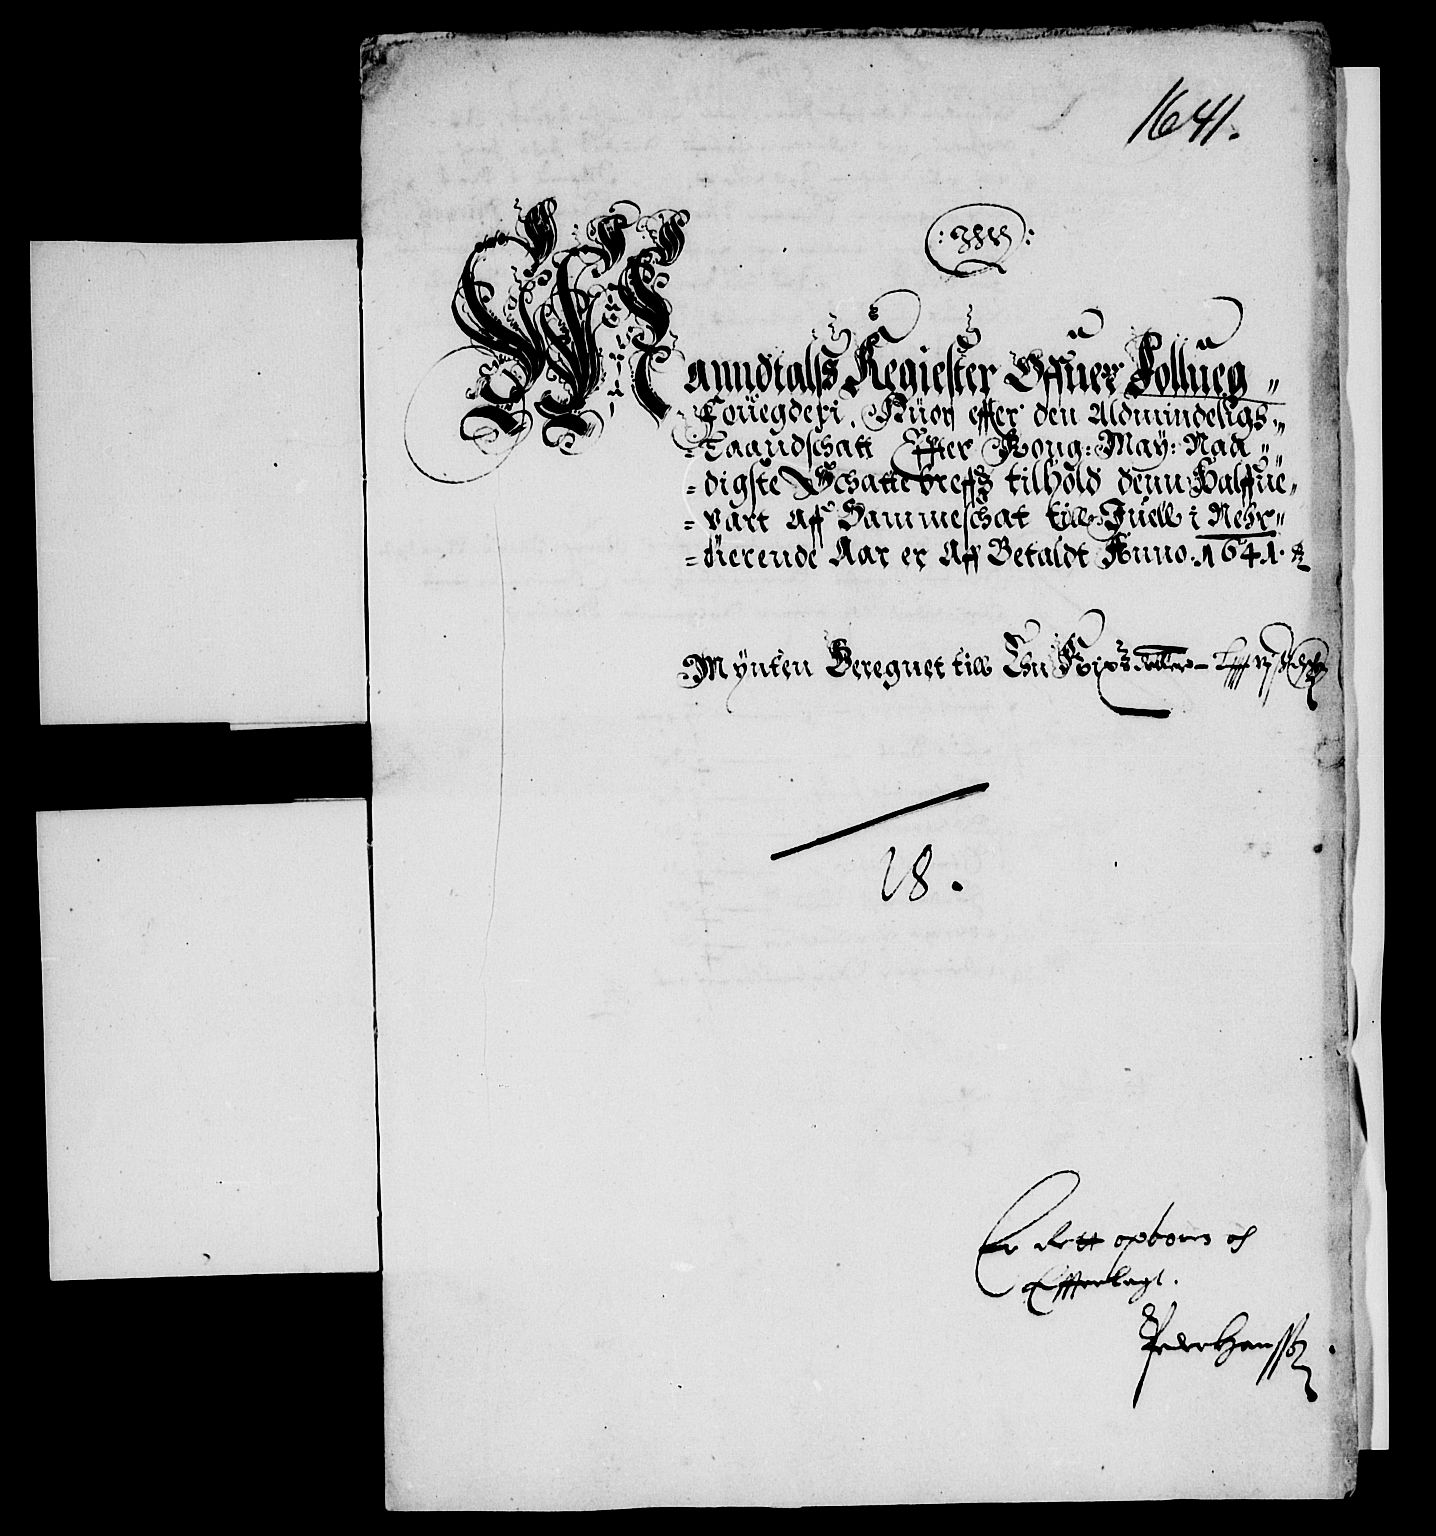 1641.
Manndtalss Regiester Offuer Follueg
Fouegderi, Huor effter den Aldmindeligs
Laandschatt Effter Kong: May: Naa
digste Schatte breffs tilhold denn Halffue
part Aff Sammeschat till Juell i Nehr
uierende Aar er Aff Betaldt Anno. 1641.
Mynten Beregnet till En Rixs daller
18.
Er Rett opboren och
Efftterlagt.
Peder Hanssen